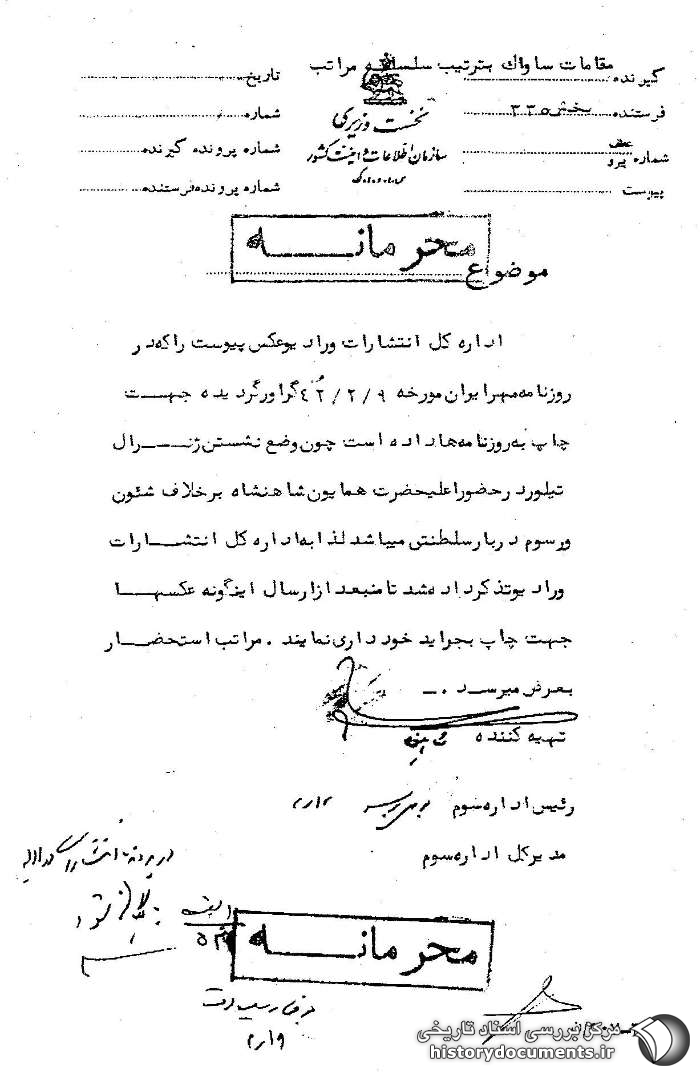 مقامات ساواك بترتيب سلسله مراتب
گیرنده
تاریخ
فرستنده بخش ۳۳۵
نخست وزیری
شماره
سازمان اطلاعات و امنیت کشور
س.ا.و.ا.ک
شماره پرونده گیرنده
شماره
پیرو
عطف
پیوست
شماره پرونده فرستنده
محرمانه
موضوع
اداره کل انتشارات و رادیو عکس پیوست را که در
روزنامه مهرایران مورخه ۴۲/۲/۹ گراور گردیده جهت
چاپ به روزنامه ها داده است چون وضع نشستن ژنرال
تیلور در حضور اعلیحضرت همایون شاهنشاه برخلاف شئون
و رسوم دربار سلطنتی میباشد لذا به اداره کل انتشارات
و رادیو تذکر داده شد تا منبعد از ارسال اینگونه عکسها
جهت چاپ بجراید خودداری نمایند. مراتب استحضارا
بعرض میرسد.
تهیه کننده
رئیس اداره سوم
مدیرکل اداره سوم
در پرونده انتشارات و رادیو
بایگانی شود
محرمانه
مرکز بررسی اسناد تاریخی
historydocuments.ir